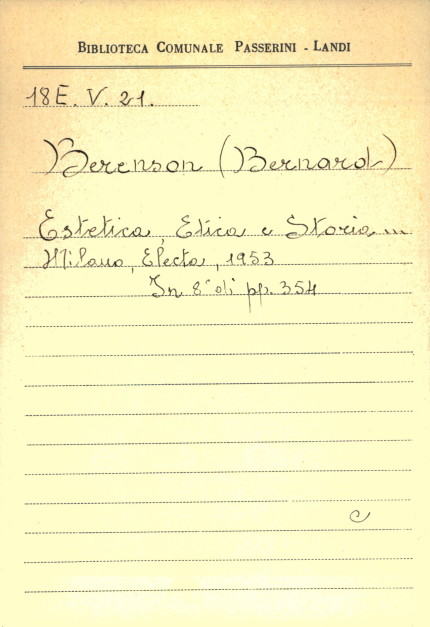 BIBLIOTECA COMUNALE PASSERINI - LANDI
18E. V. 21.
Berenson (Bernard)
Estetica, Etica e Storia ...
Milano, Electa, 1953
In 8° di pp. 354
C